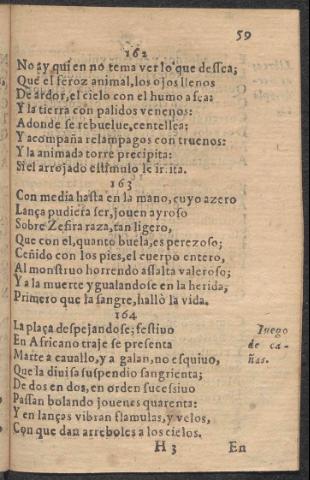 59
162
No ay quiẽ en no tema ver lo que dessea;
Que el feroz animal, los ojos llenos
De ardor, el cielo con el humo afea:
Y la tierra con palidos venenos:
Adonde se rebuelue, centellea:
Y acompaña relampagos con truenos:
Y la animada torre precipita:
Si el arrojado estimulo le irrita.
163
Con media hasta en la mano, cuyo azero
Lança pudiera ser, jouen ayroso
Sobre Zefira raza, tan ligero,
Que con el, quanto buela, es perezoso;
Ceñido con los pies, el cuerpo entero,
Al monstruo horrendo assalta valeroso;
Y a la muerte ygualandose en la herida,
Primero que la sangre, hallò la vida.
164
La plaça despejandose; festiuo
En Africano traje se presenta
Marte a cauallo, y a galan, no esquiuo,
Que la diuisa suspendio sangrienta;
De dos en dos, en orden sucessiuo
Passan bolando jouenes quarenta:
Y en lanças vibran flamulas, y velos,
Con que dan arreboles a los cielos.
Juego
de ca-
ñas.
H 3 En